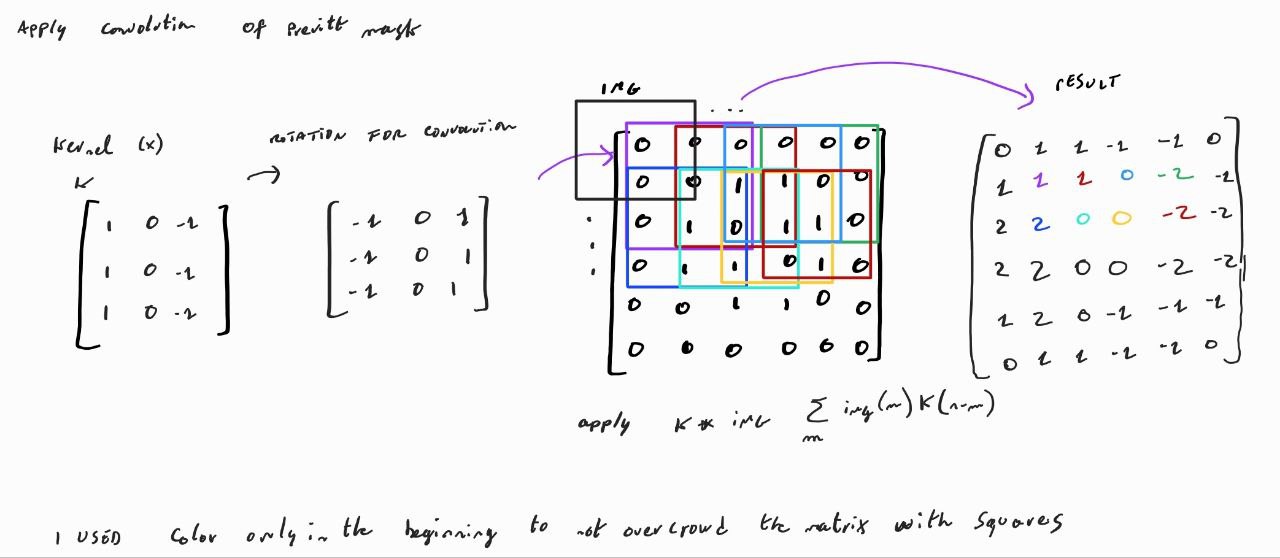 Apply convolution of Prewitt mask
IMG
. . .
RESULT
Kernel (x)
ROTATION FOR CONVOLUTION
K
1 0 -1
1 0 -1
1 0 -1
-1 0 1
-1 0 1
-1 0 1
0 0 0 0 0 0
0 0 1 1 0 0
0 1 0 1 1 0
0 1 1 0 1 0
0 0 1 1 0 0
0 0 0 0 0 0
0 1 1 -1 -1 0
1 1 1 0 -2 -1
2 2 0 0 -2 -2
2 2 0 0 -2 -2
1 2 0 -1 -1 -1
0 1 1 -1 -1 0
apply K * IMG ∑ img(m) K(n-m)
m
I USED color only in the beginning to not overcrowd the matrix with squares